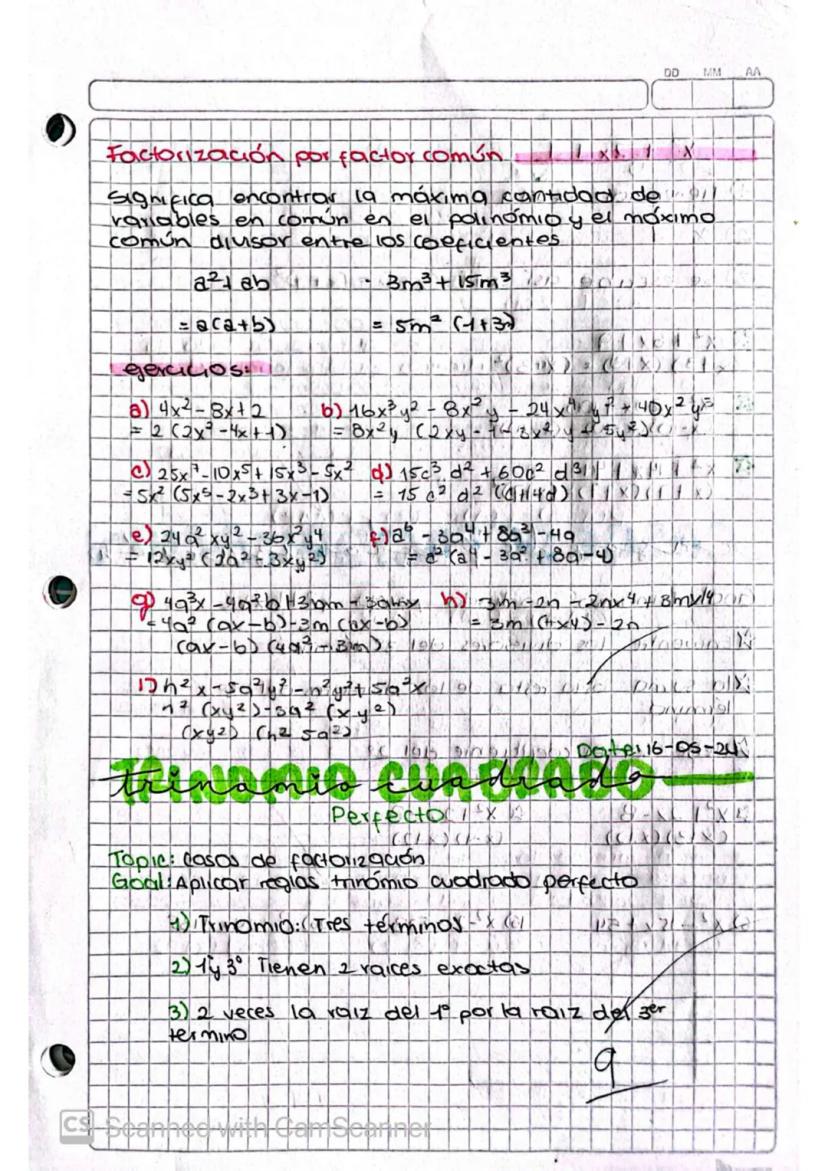 DD MM AA
Factorización por factor común
significa encontrar la máxima cantidad de
variables en común en el polinómio y el máximo
común divisor entre los coeficientes
a²+ ab - 3m³ + 15m³
= a(a+b) = 5m² (-1+3)
ejercicios:
a) 4x² - 8x + 2 b) 16x³y² - 8x²y - 24x⁴y² + 40x²y³
= 2 (2x² - 4x + 1) = 8x²y (2xy - 1 - 3x²y + 5y²)
c) 25x⁷ - 10x⁵ + 15x³ - 5x² d) 15c³d² + 60c²d³
= 5x² (5x⁵ - 2x³ + 3x - 1) = 15c²d² (c+4d)
e) 24a²xy² - 36x²y⁴ f) a⁶ - 3a⁴ + 8a³ - 4a
= 12xy² (2a² - 3xy²) = a² (a4 - 3a² + 8a - 4)
g) 4a³x - 4a²b + 3bm - 3amx h) 3m - 2n - 2nx⁴ + 3mx4
= 4a² (ax-b) - 3m (ax-b) = 3m (1+x4) - 2n
(ax-b) (4a² - 3m)
i) n²x - 5a²y² - n²y² + 5a²x
n² (xy²) - 5a² (xy²)
(xy²) (n² 5a²)
Date: 16-05-24
trinomio cuadrado
Perfecto
Topic: casos de factorización
Goal: Aplicar reglas trinómio cuadrado perfecto
1) Trinomio: Tres términos
2) 1 y 3° Tienen 2 raices exactas
3) 2 veces la raiz del 1° por la raiz del 3er
termino
9
CS Scanned with CamScanner